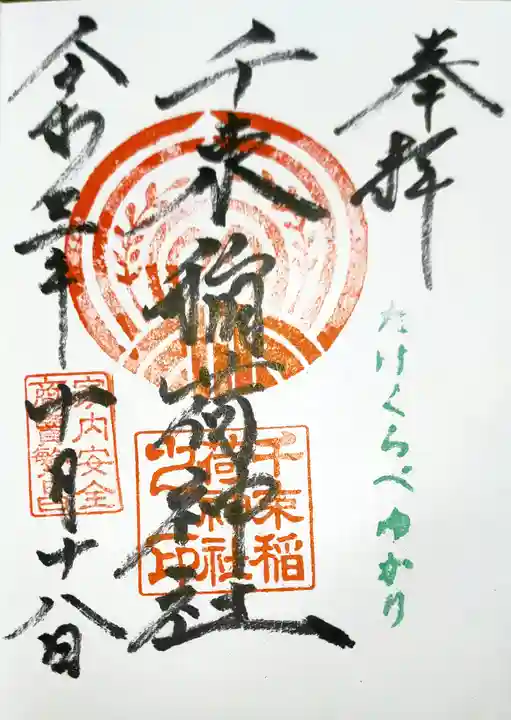 奉拝
たけくらべゆかり
千束稲荷神社
千束稲
荷神社
之印
令和三年十月十八日
家内安全
商売繁昌